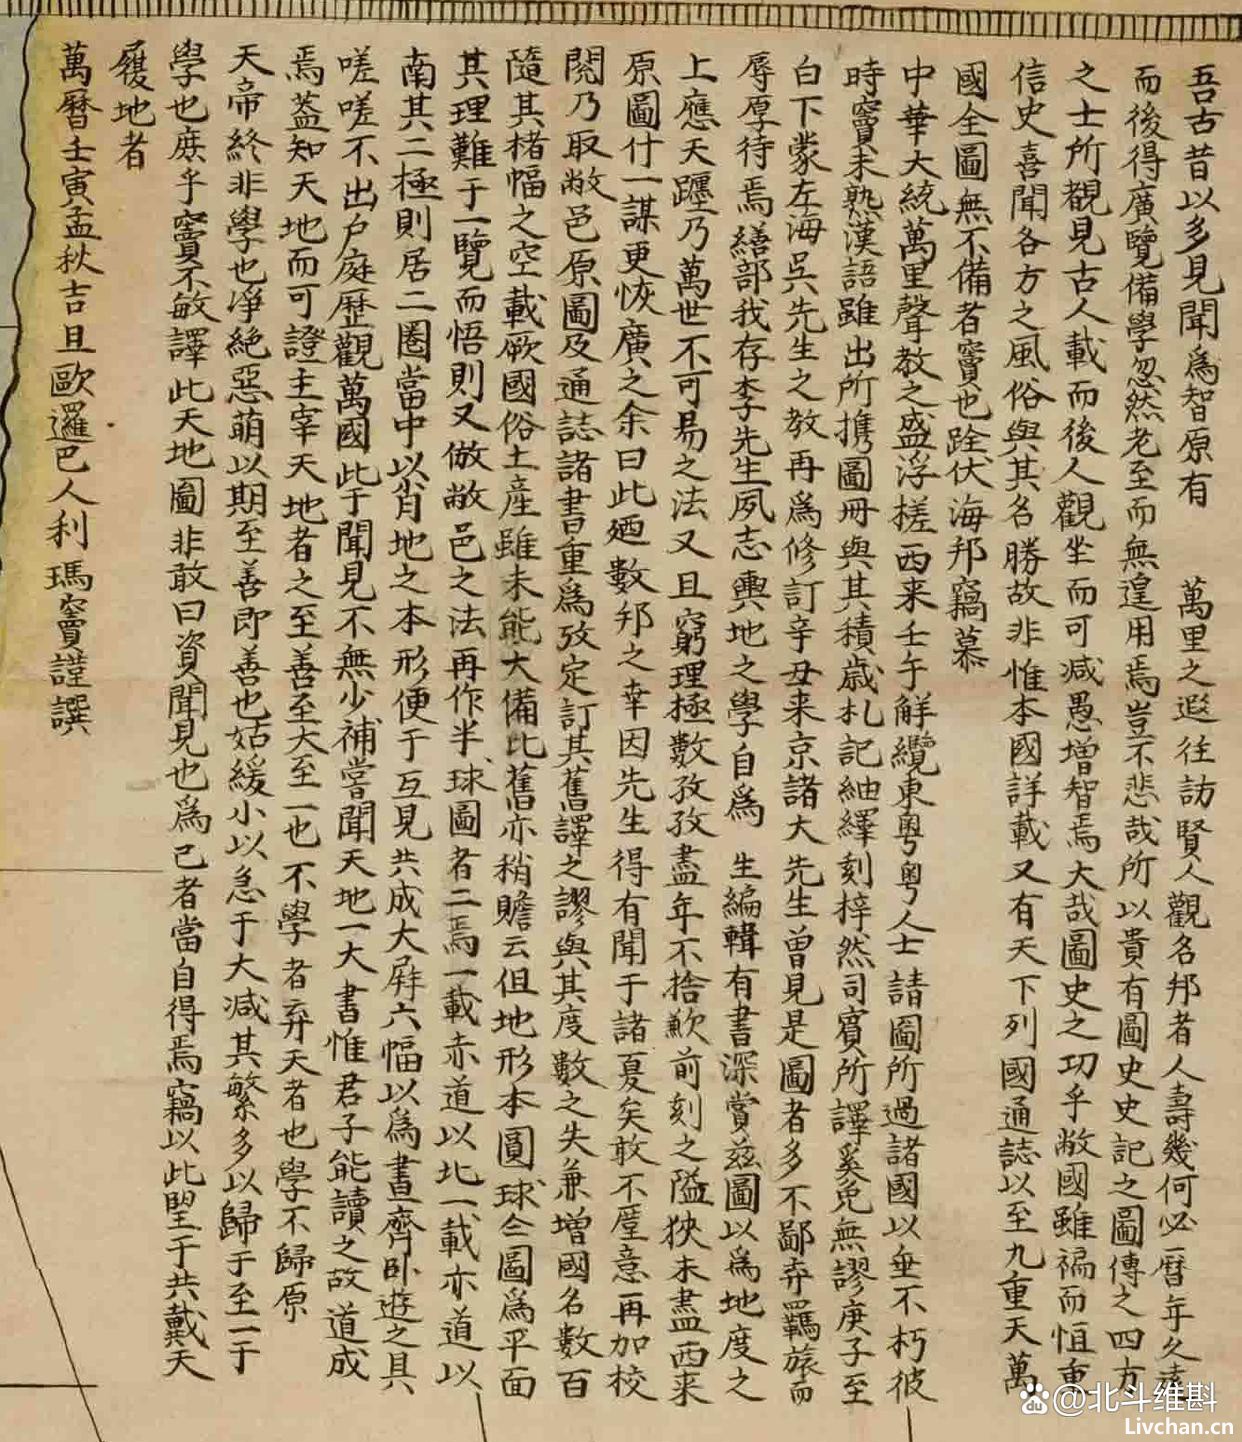 吾古昔以多見聞爲智原有 萬里之遐往訪賢人觀名邦者人壽幾何必曆年久遠
而後得廣覽備學忽然老至而無遑用焉豈不悲哉所以貴有圖史史記之圖傳之四方
之士所觀見古人載而後人觀坐而可減愚增智焉大哉圖史之功乎敝國雖褊而恒重
信史喜聞各方之風俗與其名勝故非惟本國詳載又有天下列國通誌以至九重天萬
國全圖無不備者竇也跧伏海邦竊慕
中華大統萬里聲教之盛浮槎西来壬午解纜東粵粵人士請圖所過諸國以垂不朽彼
時竇未熟漢語雖出所携圖冊與其積歲札記紬繹刻梓然司賓所譯奚免無謬庚子至
白下蒙左海吳先生之教再爲修訂辛丑来京諸大先生曾見是圖者多不鄙弃羈旅而
辱厚待焉繕部我存李先生夙志輿地之學自爲 生編輯有書深賞兹圖以爲地度之
上應天躔乃萬世不可易之法又且窮理極數孜孜盡年不捨歉前刻之隘狹未盡西来
原圖什一謀更恢廣之余曰此廼數邦之幸因先生得有聞于諸夏矣敢不罄意再加校
閱乃取敝邑原圖及通誌諸書重爲攷定訂其舊譯之謬與其度數之失兼增國名數百
隨其楮幅之空載厥國俗土産雖未能大備比舊亦稍贍云但地形本圓球仝圖爲平面
其理難于一覽而悟則又倣敝邑之法再作半球圖者二焉一載赤道以北一載亦道以
南其二極則居二圈當中以肖地之本形便于互見共成大屏六幅以爲書齊卧遊之具
嗟嗟不出户庭歷觀萬國此于聞見不無少補嘗聞天地一大書惟君子能讀之故道成
焉蓋知天地而可證主宰天地者之至善至大至一也不學者弃天者也學不歸原
天帝終非學也净絶惡萌以期至善即善也姑緩小以急于大减其繁多以歸于至一于
學也庶乎竇不敏譯此天地圖非敢曰資聞見也爲己者當自得焉竊以此望于共戴天
履地者
萬曆壬寅孟秋吉旦歐邏巴人利瑪竇謹譔
@北斗维斟
Livchan.cn